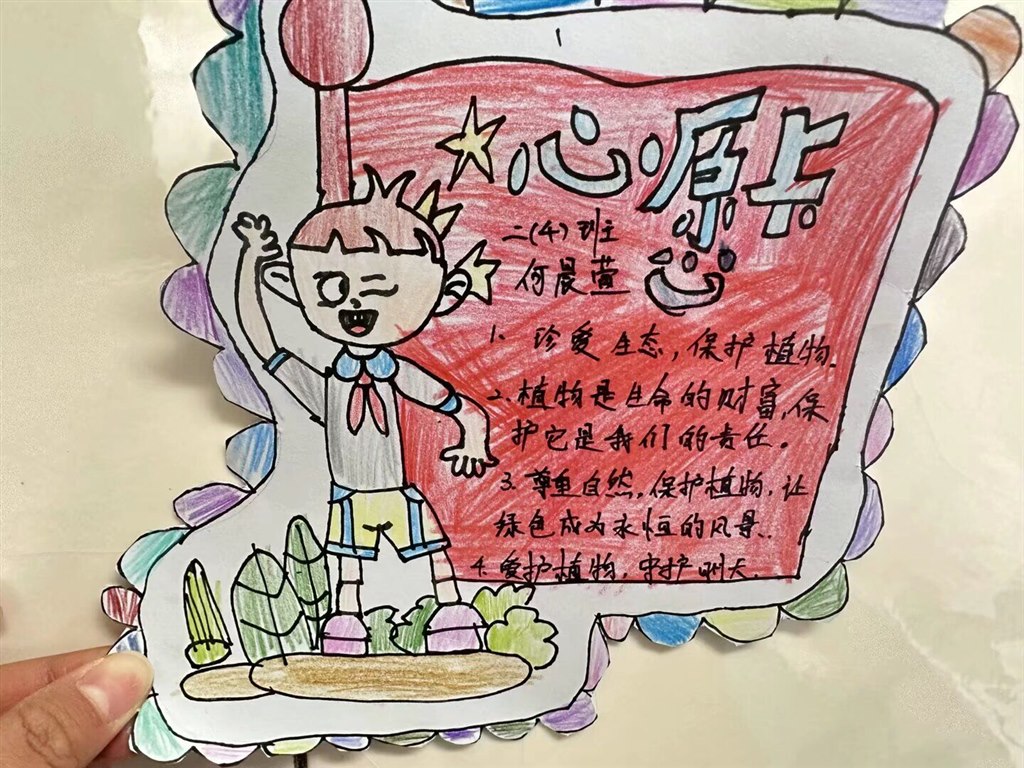 心原卡
二(4)班
何晨萱
1. 珍爱生态,保护植物.
2.植物是生命的财富,保
护它是我们的责任。
3.尊重自然,保护植物,让
绿色成为永恒的风景..
4.爱护植物,守护明天.